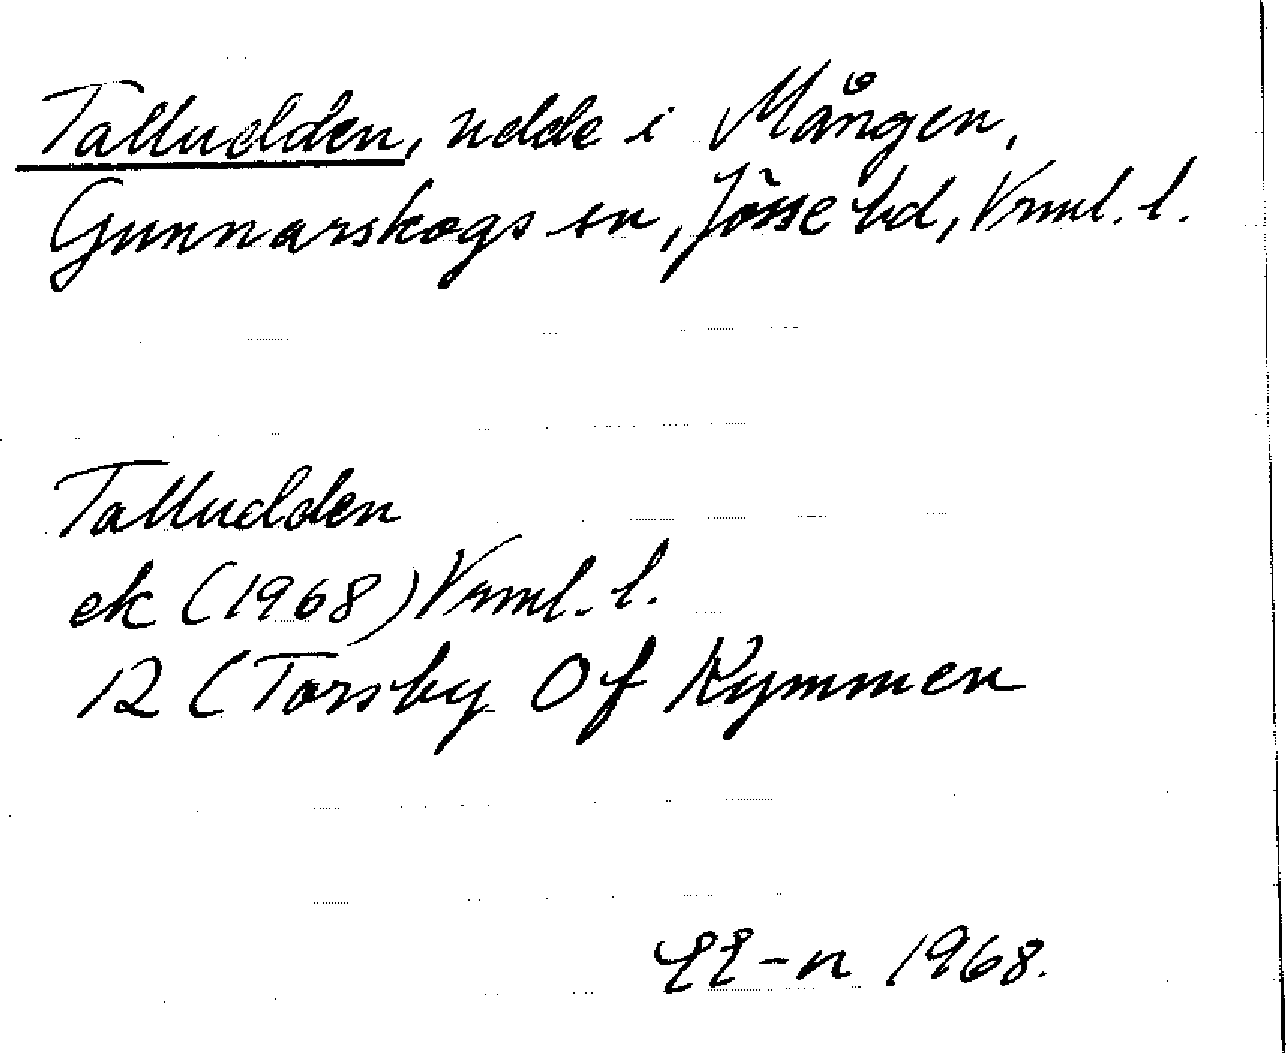 Talludden, udde i Mången,
Gunnarskogs sn, Jösse hd, Vrml. l.
Talludden
ek (1968) Vrml. l.
12 (Torsby Of Kymmen
EE-n 1968.